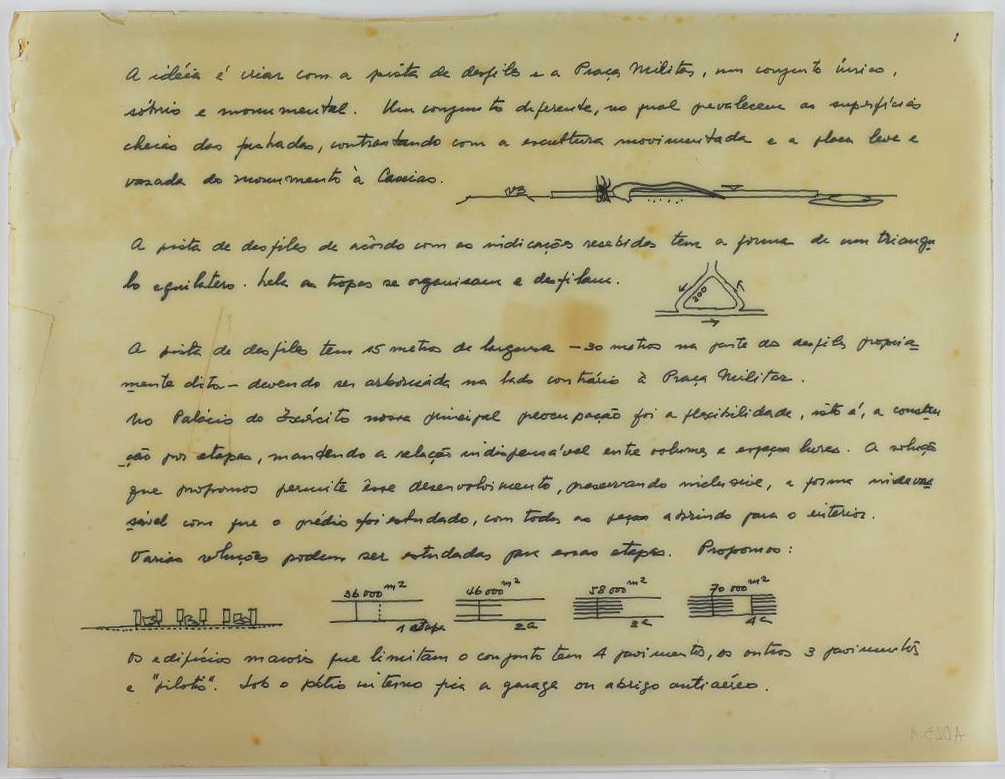 1
A idéia é criar com a pista de desfile e a Praça Militar, um conjunto único,
sóbrio e monumental. Um conjunto diferente, no qual prevalecem as superfícies
cheias das fachadas, contrastando com a escultura movimentada e a placa leve e
vazada do monumento à Caxias.
A pista de desfiles de acôrdo com as indicações recebidas tem a forma de um triangu-
lo equilatero. Nela as tropas se organisam e desfilam.
200
A pista de desfiles tem 15 metros de largura – 30 metros na parte do desfile propria-
mente dito – devendo ser arborizada no lado contrário à Praça Militar.
No Palácio do Exército nossa principal preocupação foi a flexibilidade, isto é, a constru-
ção por etapas, mantendo a relação indispensável entre volumes e espaços livres. A solução
que propomos permite êsse desenvolvimento, preservando inclusive, a forma
com que o prédio foi estudado, com todas as peças abrindo para o interior.
Varias soluções podem ser estudadas para essas etapas. Propomos:
36 000 m2 46 000 m2 58 000 m2 70 000 m2
1 etapa 2a 3a 4a
Os edifícios maiores que limitam o conjunto tem 4 pavimentos, os outros 3 pavimentos
e "pilotis". Sob o pátio interno fica a garage ou abrigo antiaéreo.